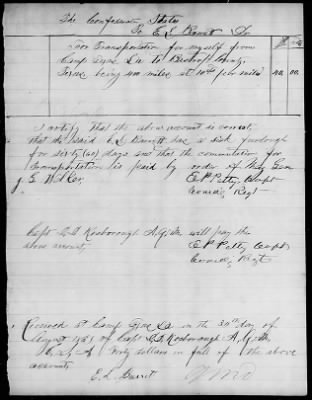 The Confederate States
To E. L. Barrett Dr
For Transportation for myself from
Camp La to County,
Texas being 400 miles at 10cts per mile 40 00
I certify that the above account is correct
that the said E L Barrett has a sick furlough
for sixty (60) days and that the commutation for
transportation is paid by order of Maj Gen
J. G. Walker,
E P Petty Capt
Comdg Regt
Capt A.Q.M. will pay the
above account
E P Petty Capt
Comdg Regt
Received at Camp La on the 30th day of
August 186 of Capt A. Q. M.
C. S. A Forty dollars in full of the above
account,
E. L. Barrett